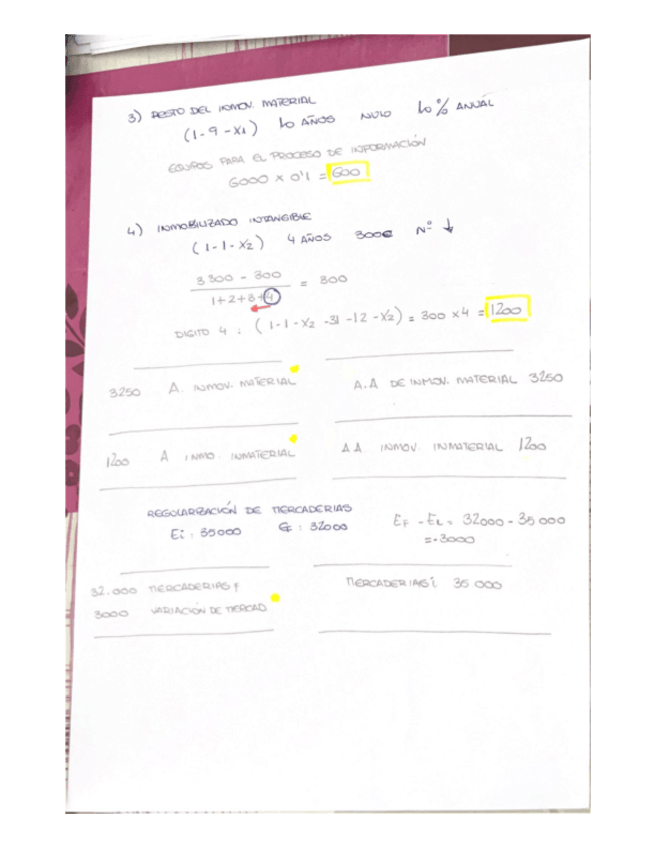 3) RESTO DEL INMOV. MATERIAL
(1-9-X1) 10 AÑOS NULO 10% ANUAL
EQUIPOS PARA EL PROCESO DE INFORMACIÓN
6000 x 0'1 = 600
4) INMOBILIZADO INTANGIBLE
(1-1-X2) 4 AÑOS 300€ Nº ↓
3300 - 300
1+2+3+4
= 300
DIGITO 4 : (1-1-X2 -31-12-X2) = 300 x4 = 1200
3250 A. INMOV. MATERIAL A.A DE INMOV. MATERIAL 3250
1200 A INMO. INMATERIAL AA INMOV. INMATERIAL 1200
REGULARIZACIÓN DE MERCADERIAS
Ei : 35000 Ef : 32000 EF - Ei = 32000 - 35 000
= -3000
32.000 MERCADERIAS f MERCADERIAS i 35 000
3000 VARIACIÓN DE MERCAD